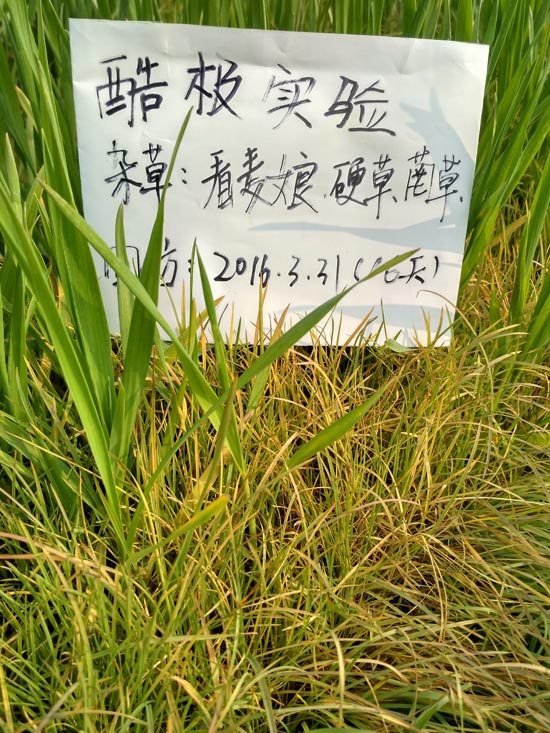 酷极实验
杂草：看麦娘、硬草、茵草
回访：2016.3.31（16天）